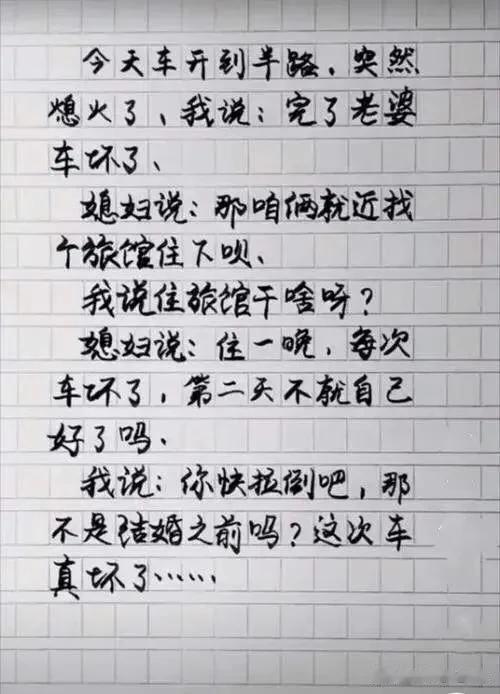 今天车开到半路，突然
熄火了、我说：完了老婆
车坏了、
媳妇说：那咱俩就近找
个旅馆住下呗、
我说住旅馆干啥呀？
媳妇说：住一晚，每次
车坏了，第二天不就自己
好了吗、
我说：你快拉倒吧，那
不是结婚之前吗？这次车
真坏了……